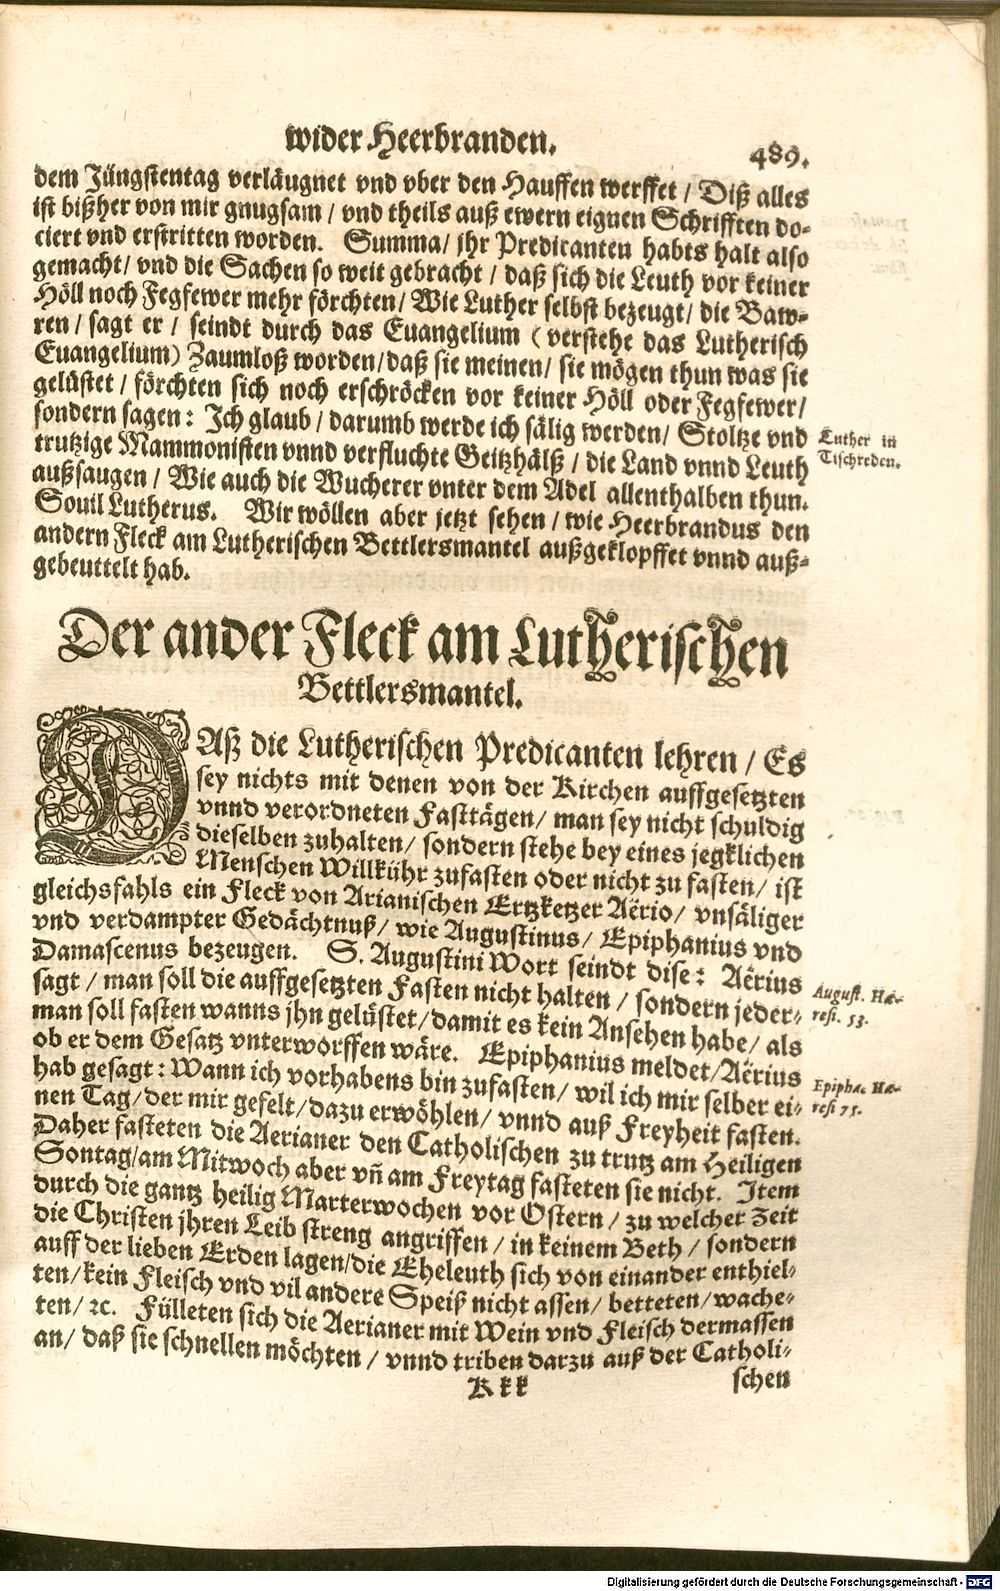 wider Heerbranden.
489.
dem Jüngstentag verläugnet vnd vber den Hauffen werffet / Diß alles
ist bißher von mir gnugsam / vnd theils auß ewern eignen Schrifften do-
ciert vnd erstritten worden. Summa / jhr Predicanten habts halt also
gemacht / vnd die Sachen so weit gebracht / daß sich die Leuth vor keiner
Höll noch Fegfewer mehr förchten / Wie Luther selbst bezeugt / die Baw-
ren / sagt er / seindt durch das Euangelium ( verstehe das Lutherisch
Euangelium) Zaumloß worden / daß sie meinen / sie mögen thun was sie
gelüstet / förchten sich noch erschröcken vor keiner Höll oder Fegfewer /
sondern sagen: Ich glaub / darumb werde ich sälig werden / Stoltze vnd
trutzige Mammonisten vnnd verfluchte Geitzhälß / die Land vnnd Leuth
außsaugen / Wie auch die Wucherer vnter dem Adel allenthalben thun.
Souil Lutherus. Wir wöllen aber jetzt sehen / wie Heerbrandus den
andern Fleck am Lutherischen Bettlersmantel außgeklopffet vnnd auß-
gebeuttelt hab.
Luther in
Tischreden.
Der ander Fleck am Lutherischen
Bettlersmantel.
DAß die Lutherischen Predicanten lehren / Es
sey nichts mit denen von der Kirchen auffgesetzten
vnnd verordneten Fasttägen / man sey nicht schuldig
dieselben zuhalten / sondern stehe bey eines jegklichen
Menschen Willkühr zufasten oder nicht zu fasten / ist
gleichsfahls ein Fleck von Arianischen Ertzketzer Aërio / vnsäliger
vnd verdampter Gedächtnuß / wie Augustinus / Epiphanius vnd
Damascenus bezeugen. S. Augustini Wort seindt dise: Aërius
sagt / man soll die auffgesetzten Fasten nicht halten / sondern jeder-
man soll fasten wanns jhn gelüstet / damit es kein Ansehen habe / als
ob er dem Gesatz vnterworffen wäre. Epiphanius meldet / Aërius
hab gesagt: Wann ich vorhabens bin zufasten / wil ich mir selber ei-
nen Tag / der mir gefelt / dazu erwöhlen / vnnd auß Freyheit fasten.
Daher fasteten die Aerianer den Catholischen zu trutz am Heiligen
Sontag / am Mitwoch aber vñ am Freytag fasteten sie nicht. Item
durch die gantz heilig Marterwochen vor Ostern / zu welcher Zeit
die Christen jhren Leib streng angriffen / in keinem Beth / sondern
auff der lieben Erden lagen / die Eheleuth sich von einander enthiel-
ten / kein Fleisch vnd vil andere Speiß nicht assen / betteten / wache-
ten / ꝛc. Fülleten sich die Aerianer mit Wein vnd Fleisch dermassen
an / daß sie schnellen möchten / vnnd triben darzu auß der Catholi-
August. Hæ-
resi. 53.
Epipha. Hæ-
resi 75.
Kkk
schen
Digitalisierung gefördert durch die Deutsche Forschungsgemeinschaft - DFG